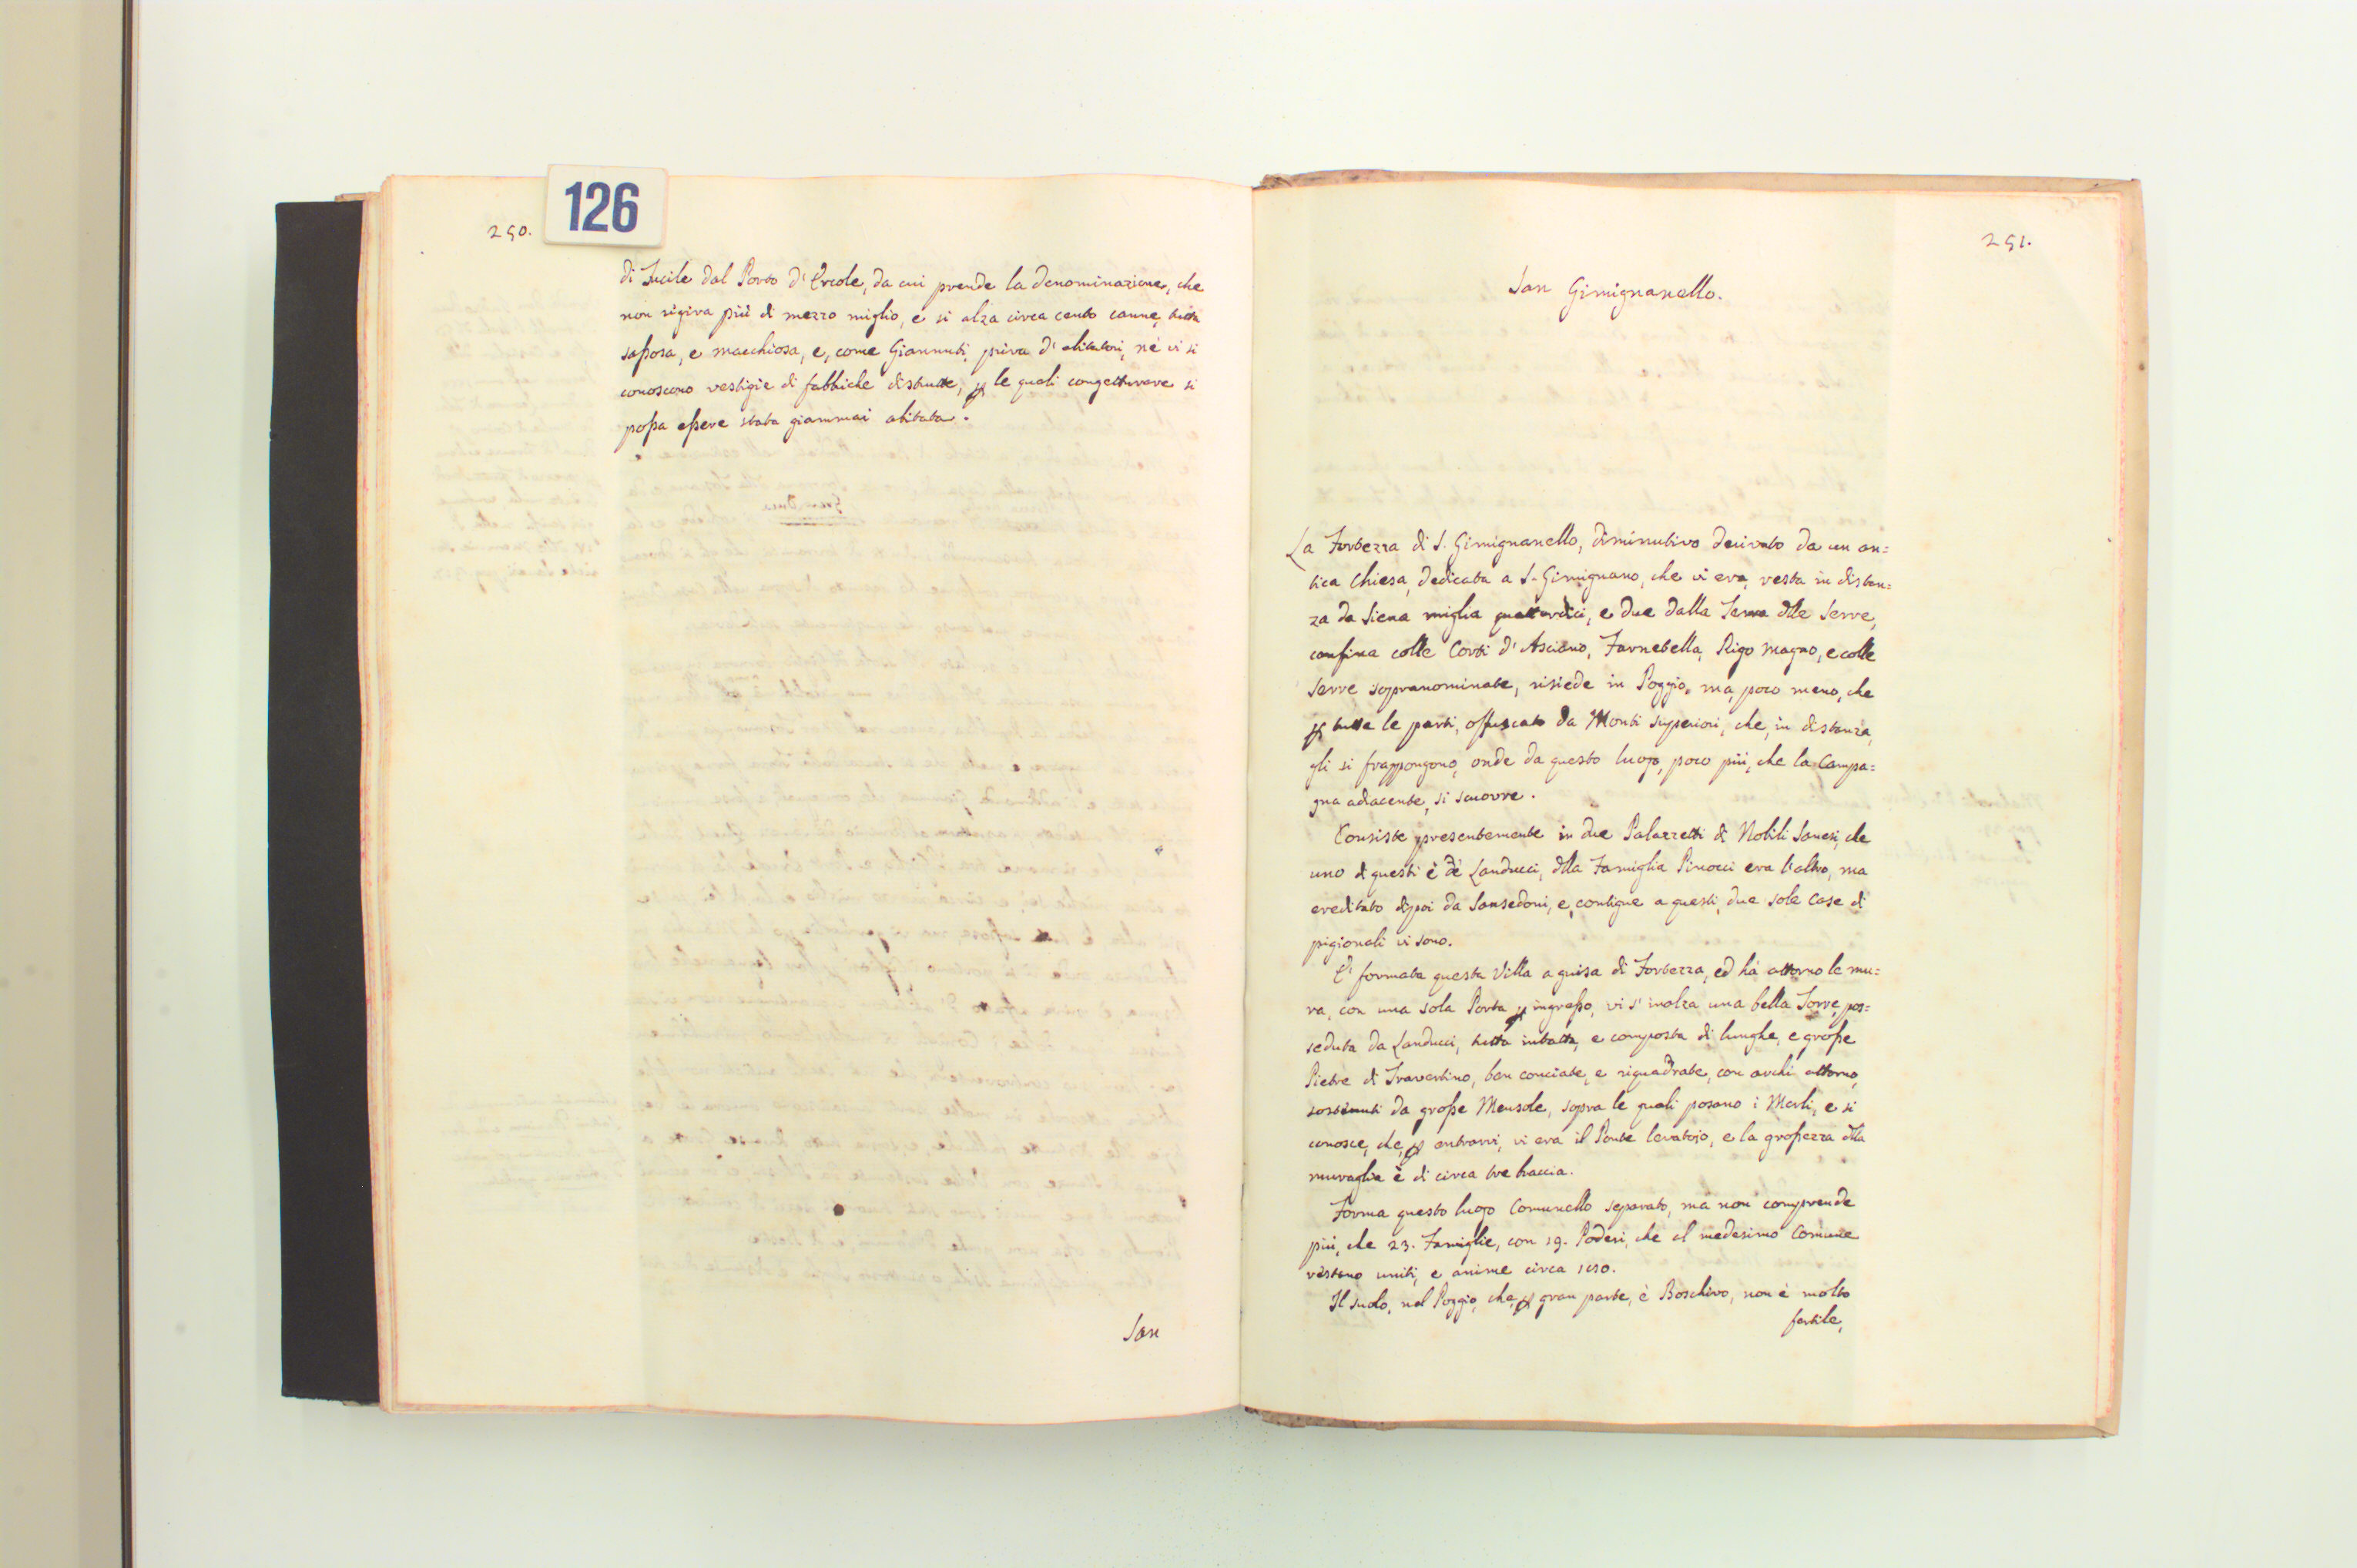 126
250.
di Fucile dal Porto d'Ercole, da cui prende la denominazione, che
non rigira più di mezzo miglio, e si alza circa cento canne, tutta
sassosa, e macchiosa, e, come Giannuti, priva d'abitatori, nè vi si
conoscono vestigie di fabbriche distrutte, p le quali congetturare si
possa essere stata giammai abitata.
San
251.
San Gimignanello.
La Fortezza di S. Gimignanello, diminutivo derivato da un an=
tica Chiesa, dedicata a S. Gimignano, che vi era, resta in distan=
za da Siena miglia quattordici, e due dalla Terra dlle Serre,
confina colle Corti d'Asciano, Farnetella, Rigo magno, e colle
Serre sopranominate, risiede in Poggio, ma, poco meno, che
p tutte le parti, offuscato da Monti superiori, che, in distanza,
gli si frappongono, onde da questo luogo, poco più, che la Campa=
gna adiacente, si scuopre.
Consiste presentemente in due Palazzetti di Nobili Sanesi, che
uno di questi è de' Landucci, dlla Famiglia Pinocci era l'altro, ma
ereditato dipoi da Sansedoni, e, contigue a questi, due sole Case di
pigionali vi sono.
E' formata questa Villa a guisa di Fortezza, ed hà attorno le mu=
ra, con una sola Porta p ingresso, vi s'inalza una bella Torre, pos=
seduta da Landucci, tutta intatta, e composta di lunghe, e grosse
Pietre di Travertino, ben conciate, e riquadrate, con archi attorno,
sostenuti da grosse Mensole, sopra le quali posano i Merli, e si
conosce, che, p entrarvi, vi era il Ponte levatojo, e la grossezza dlla
muraglia è di circa tre braccia.
Forma questo luogo Comunello separato, ma non comprende
più, che 23. Famiglie, con 19. Poderi, che al medesimo Comune
restano uniti, e anime circa 150.
Il suolo, nel Poggio, che, p gran parte, è Boschivo, non è molto
fertile,